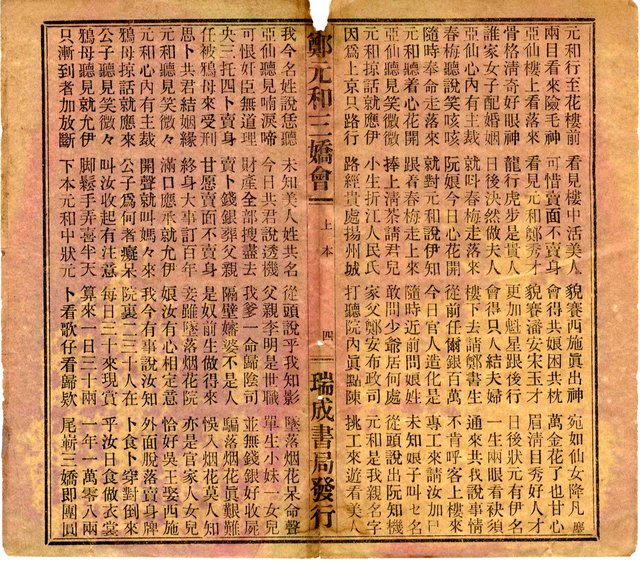 元和行至花樓前 看見樓中活美人 貌賽西施眞出神 宛如仙女降凡塵
兩目看來險毛神 可惜賣面不賣身 會得共娘困共枕 萬金花了也甘心
亞仙樓上看落來 看見元和鄭秀才 貌賽潘安宋玉才 眉清目秀好人才
骨格清奇好眼神 龍行虎步是貴人 更加魁星跟後行 日後狀元有伊名
誰家女子配婚姻 日後決然做夫人 會得只人結夫婦 一生兩眼看袂須
亞仙心內有主裁 就叫春梅緊走來 樓下去請鄭書生 通來共我說事情
春梅聽說笑咳咳 阮娘今日心花開 從前任爾銀百萬 不肯呼客上樓來
隨時奉命走落來 就對元和說伊知 今日官人造化是 專工來請汝加巳
元和聽着心花開 跟着春梅走上來 隨時近前問娘姓 未知娘子叫乜名
亞仙聽見笑微々 捧上淸茶請君兒 敢問少爺居何處 從頭說出阮知機
元和掠話就應伊 小生折江人民氏 家父鄭安布政司 元和是我親名字
因爲上京只路行 路經貴處揚州城 打聽院內眞點陳 挑工來遊看美人
鄭元和三嬌會 上本 四 瑞成書局發行
我今名姓說恁聽 未知美人姓共名 從頭說乎我知影 墜落烟花呆命聲
亞仙聽見喃淚啼 今日共君說透機 父親李明是世職 單生小妹一女兒
可恨奸臣無道理 財產全部搜盡去 我爹一命歸陰司 並無錢銀好收屍
央三托四卜賣身 賣卜錢銀葬父親 隔壁嫁婆不是人 騙落烟花眞艱難
任被鴇母來受刑 甘愿賣面不賣身 是奴前生做得來 悞入烟花莫人知
思卜共君結姻緣 終身大事訂百年 妾雖墜落烟花院 亦是官家人女兒
元和聽見笑微々 滿口應承就允伊 娘汝有心相定意 恰好吳王娶西施
元和心內有主裁 開聲就叫媽々來 我今有事說汝知 外面脫落賣身牌
鴇母掠話就應來 公子爲何者癡呆 院裏二三十人在 卜食卜穿對倒來
公子聽見笑微々 叫汝收起有注意 每日三十來現賞 乎汝日食做衣裳
鴇母聽見就允伊 脚鬆手弄喜半天 算來一日三十兩 一年一萬零八兩
只漸到者加放斷 下本元和中狀元 卜看歌仔看歸欵 尾嶄三嬌即團圓